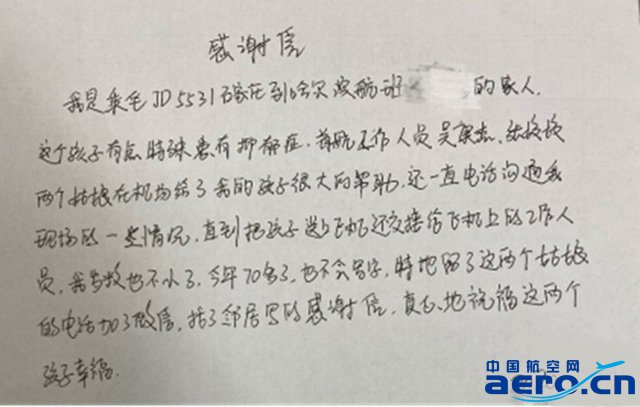 感谢信
我是乘坐JD5531石家庄到哈尔滨航班 的家人.
这个孩子有点特殊患有抑郁症.首航工作人员吴
两个姑娘在机场给了我的孩子很大的帮助,还一直电话沟通我
现场的一些情况,直到把孩子送上飞机还交接给飞机上的工作人
员,我岁数也不小了,今年70多了,也不会写字,特地留了这两个姑娘
的电话加了微信,找了邻居写的感谢信,真心地祝福这两个
孩子幸福.
中国航空网
aero.cn